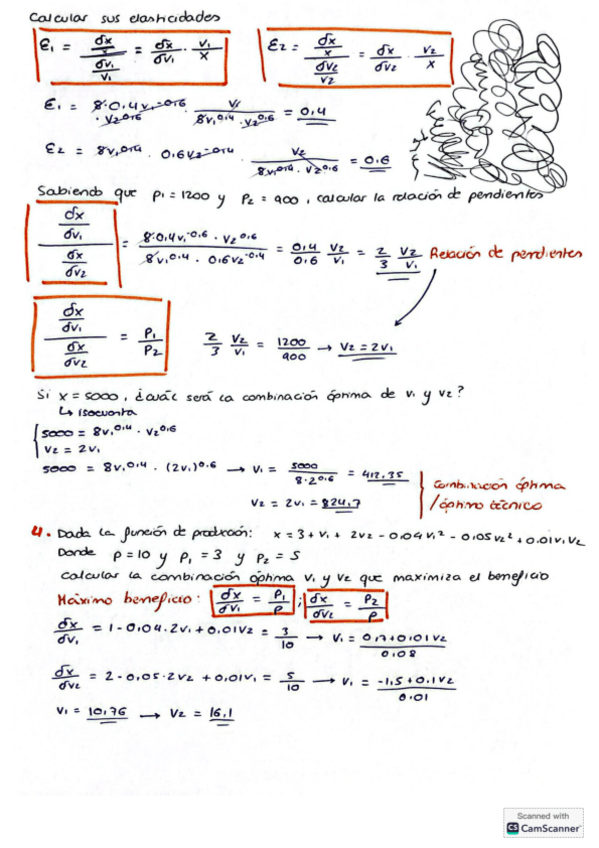 Calcular sus elasticidades
ε1 = (δx/x)/(δv1/v1) = δx/δv1 · v1/x    ε2 = (δx/x)/(δv2/v2) = δx/δv2 · v2/x
ε1 = 8·0,4v1^-0,6 · v2^0,6 · v1/(8v1^0,4 · v2^0,6) = 0,4
ε2 = 8v1^0,4 · 0,6v2^-0,4 · v2/(8v1^0,4 · v2^0,6) = 0,6
Sabiendo que p1 = 1200 y p2 = 900, calcular la relación de pendientes
(δx/δv1)/(δx/δv2) = (8·0,4v1^-0,6 · v2^0,6)/(8v1^0,4 · 0,6v2^-0,4) = 0,4/0,6 v2/v1 = 2/3 v2/v1 Relación de pendientes
(δx/δv1)/(δx/δv2) = P1/P2    2/3 v2/v1 = 1200/900 → v2 = 2v1
Si x = 5000, ¿cuál será la combinación óptima de v1 y v2?
↳ isocuanta
{ 5000 = 8v1^0,4 · v2^0,6
v2 = 2v1
5000 = 8v1^0,4 · (2v1)^0,6 → v1 = 5000/(8·2^0,6) = 412,35
v2 = 2v1 = 824,7
Combinación óptima
/óptimo técnico
4. Dada la función de producción: x = 3 + v1 + 2v2 - 0,04v1² - 0,05v2² + 0,01v1v2
Donde p = 10 y p1 = 3 y p2 = 5
Calcular la combinación óptima v1 y v2 que maximiza el beneficio
Máximo beneficio: δx/δv1 = P1/P ; δx/δv2 = P2/P
δx/δv1 = 1 - 0,04·2v1 + 0,01v2 = 3/10 → v1 = (0,7+0,01v2)/0,08
δx/δv2 = 2 - 0,05·2v2 + 0,01v1 = 5/10 → v1 = (-1,5+0,1v2)/0,01
v1 = 10,76 → v2 = 16,1
Scanned with
CS CamScanner